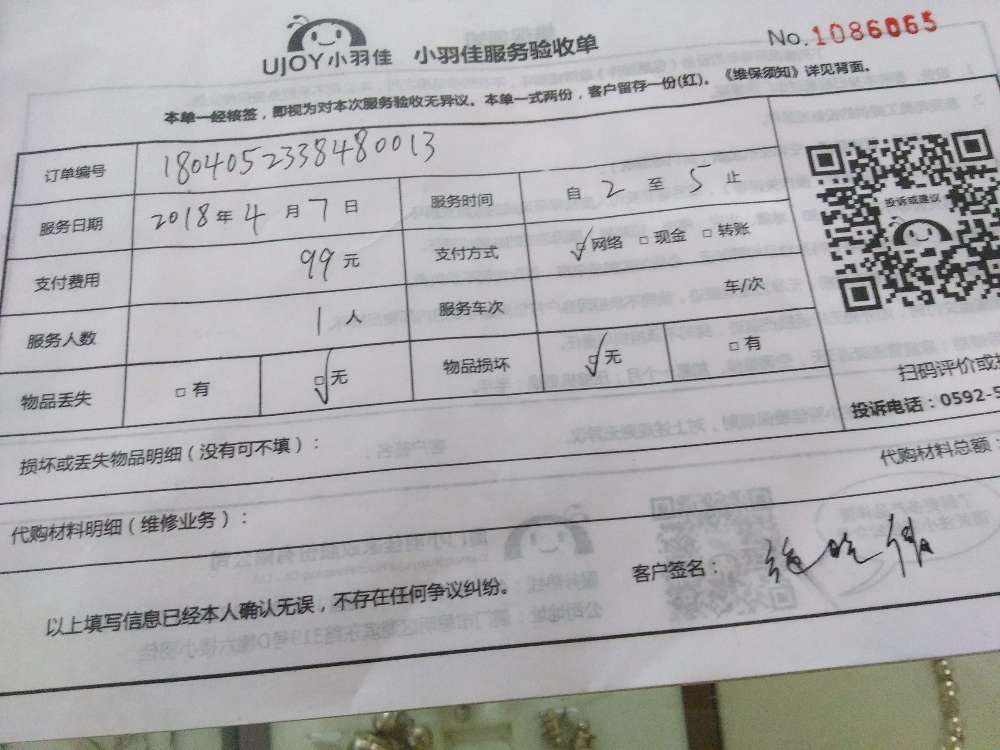 UJOY小羽佳 小羽佳服务验收单 No.1086065
本单一经核签，即视为对本次服务验收无异议。本单一式两份，客户留存一份(红)。《维保须知》详见背面。
订单编号 1804052338480013
服务日期 2018年4月7日 服务时间 自2至5止
支付费用 99元 支付方式 ☑网络 □现金 □转账
服务人数 1人 服务车次 车/次
物品丢失 □有 ☑无 物品损坏 ☑无 □有
投诉或建议
扫码评价或
投诉电话：0592-5
损坏或丢失物品明细（没有可不填）：
代购材料明细（维修业务）： 代购材料总额：
以上填写信息已经本人确认无误，不存在任何争议纠纷。 客户签名：